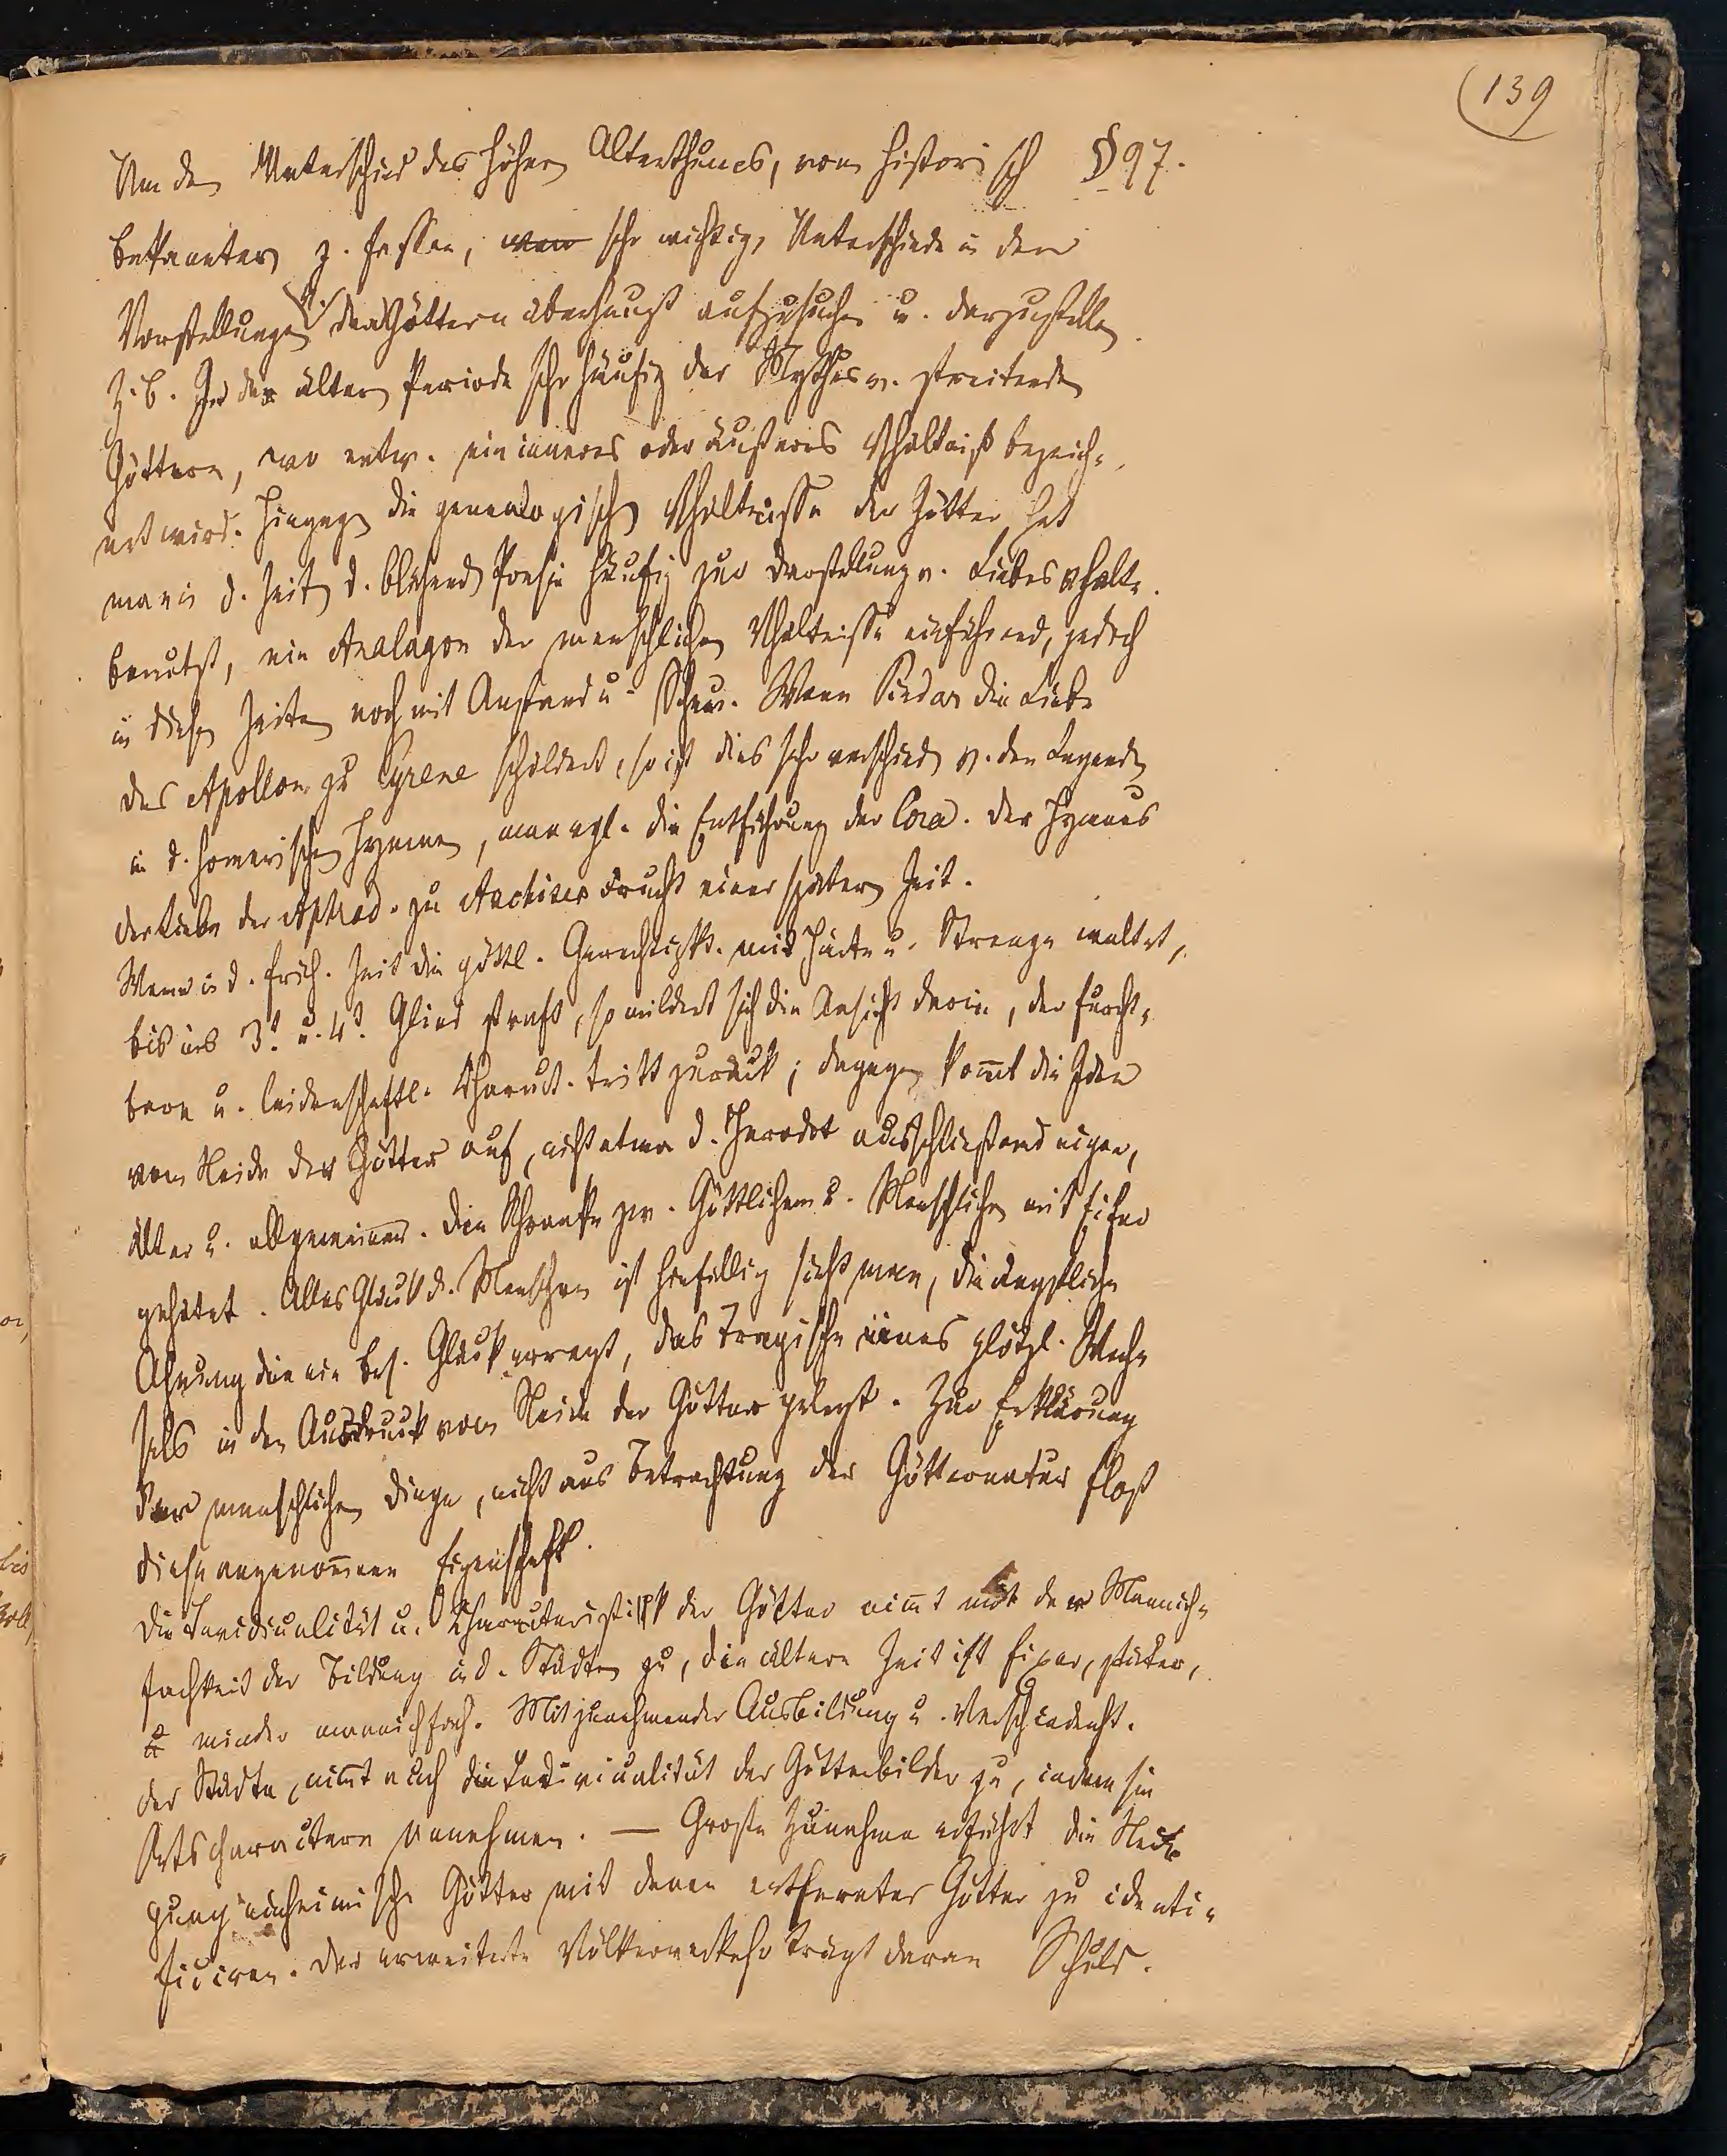 (139
Um den Unterschied des höhern Alterthumes, vom historisch §97.
bekannten z. fassen, sehr wichtig, Unterschiede in den
Vorstellungen v. den Göttern überhaupt aufzusuchen u. darzustellen.
Z. b. In der ältern Periode sehr häufig der Mythus v. streitenden
Göttern, wo entw. ein inneres oder äußeres Vhältniß bezeich-
net wird. Hingegen die genealogischen Vhältnisse der Götter hat
man in d. Zeiten d. blühend Poesie häufig zur Darstellung v. Liebesvhältn.
benutzt, ein Analagon der menschlichen Vhältnisse einführend, jedoch
in diesen Zeiten noch mit Anstand u. Scheu. Wenn Pindar die Liebe
des Apollon zu Cyrene schildert, so ist dies sehr verschieden v. den Legenden
in d. homerischen Hymnen, man vgl. die Entführung der Cora. Der Hymnus
der Liebe der Aphrod. zu Anchises Frucht einer spätern Zeit.
Wenn in d. früh. Zeit die göttl. Gerechtigk. mit Härte u. Strenge waltet,
bis ins 3t. u. 4t. Glied straft, so mildert sich die Ansicht darin, der furcht-
bare u. leidenschaftl. Charact. tritt zurück; dagegen kom̄t die Idee
vom Neide der Götter auf, nicht etwa d. Herodot ausschließend eigen,
älter u. allgemeiner. Die Schranke zw. Göttlichem u. Menschlichen mit Eifer
gehütet. Alles Glück d. Menschen ist hinfällig sieht man, die ängstliche
Ahnung die ein bes. Glück erregt, das Tragische eines plötzl. Wech-
sels in den Ausdruck vom Neide der Götter gelegt. Zur Erklärung
der menschlichen Dinge, nicht aus Betrachtung der Götternatur floß
diese angenom̄ene Eigenschaft.
Die Individualität u. Characteristik der Götter nim̄t mit der Mannich-
fachheit der Bildung in d. Städten zu, die ältere Zeit ist fixer,
u minder mannichfach. Mit zunehmender Ausbildung u. Verschiedenht.
der Städte, nim̄t auch die Individualität der Götterbilder zu, indem sie
Ortscharactere annehmen. — Große Zunahme erfährt die Nei-
gung einheimische Götter mit denen entfernter Götter zu identi-
ficiren. Der erweiterte Völkerverkehr trägt daran Schuld.